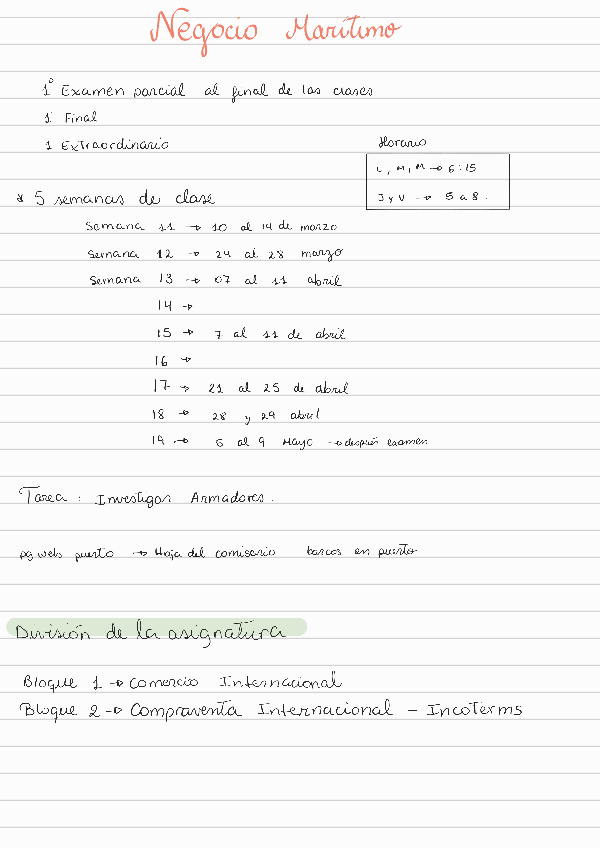 Negocio Marítimo
1º Examen parcial al final de las clases
1 Final
1 Extraordinario
Horario
L, M, M → 6:15
J y V → 5 a 8.
* 5 semanas de clase
Semana 11 → 10 al 14 de marzo
Semana 12 → 24 al 28 marzo
Semana 13 → 07 al 11 abril
14 →
15 → 7 al 11 de abril
16 →
17 → 21 al 25 de abril
18 → 28 y 29 abril
19 → 6 al 9 Mayo → después examen
Tarea: Investigar Armadores.
pg web puerto → Hoja del comisario barcos en puerto
División de la asignatura
Bloque 1 → Comercio Internacional
Bloque 2 → Compraventa Internacional - Incoterms